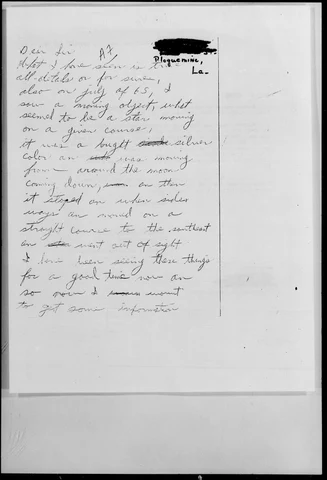 Plaquemine,
La.
Dear Sir A.F.
that I have seen is true
all-ditels or for siver,
also on july of 65, I
saw a moving object, what
seemed to be a star moving
on a given course,
it was a bright silver
color an was moving
from around the moon
coming down, an then
it stoped an when sides
ways an moved on a
straght course to the southeast
an went out of sight
I have been seeing these things
for a good time now an
so now I want
to get some information